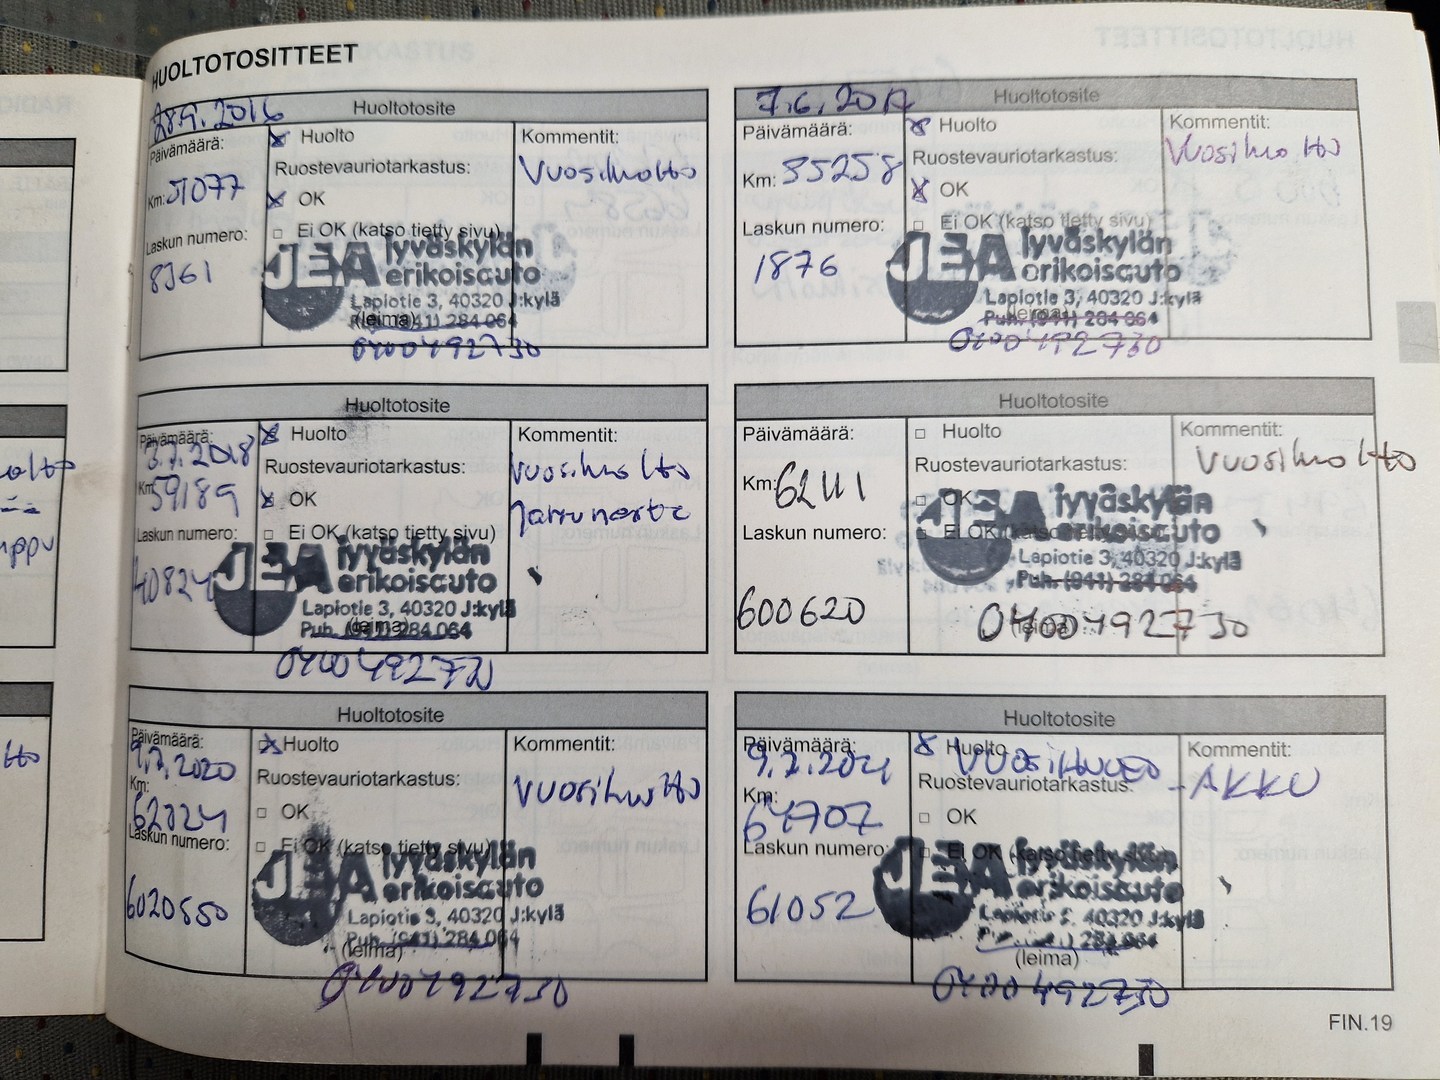 HUOLTOTOSITTEET
Huoltotosite
28.9.2016
Päivämäärä:
Huolto
Kommentit:
Ruostevauriotarkastus:
Vuosihuolto
Km: 51077
OK
Laskun numero:
Ei OK (katso tietty sivu)
8361
JEA Jyväskylän
erikoisauto
Lapiotie 3, 40320 J:kylä
(leima)
Puh. (941) 284 064
0400492730
Huoltotosite
7.6.2017
Päivämäärä:
Huolto
Kommentit:
Ruostevauriotarkastus:
Vuosihuolto
Km: 55258
OK
Laskun numero:
Ei OK (katso tietty sivu)
1876
JEA Jyväskylän
erikoisauto
Lapiotie 3, 40320 J:kylä
(leima)
Puh. (941) 284 064
0400492730
Huoltotosite
Päivämäärä:
3.7.2018
Huolto
Kommentit:
Ruostevauriotarkastus:
Vuosihuolto
Km: 59189
OK
Jarruneste
Laskun numero:
Ei OK (katso tietty sivu)
40824
JEA Jyväskylän
erikoisauto
Lapiotie 3, 40320 J:kylä
(leima)
Puh. (941) 284 064
0400492730
Huoltotosite
Päivämäärä:
Huolto
Kommentit:
Ruostevauriotarkastus:
Vuosihuolto
Km:
OK
Laskun numero:
Ei OK (katso tietty sivu)
600620
JEA Jyväskylän
erikoisauto
Lapiotie 3, 40320 J:kylä
Puh. (941) 284 064
(leima)
0400492730
Huoltotosite
Päivämäärä:
9.7.2020
Huolto
Kommentit:
Ruostevauriotarkastus:
Vuosihuolto
Km:
OK
Laskun numero:
Ei OK (katso tietty sivu)
6020550
JEA Jyväskylän
erikoisauto
Lapiotie 3, 40320 J:kylä
Puh. (941) 284 064
(leima)
0400492730
Huoltotosite
Päivämäärä:
9.7.2021
Huolto
Kommentit:
Ruostevauriotarkastus:
-AKKU
Km: 64707
OK
Laskun numero:
Ei OK (katso tietty sivu)
61052
JEA Jyväskylän
erikoisauto
Lapiotie 3, 40320 J:kylä
284 064
(leima)
0400492730
FIN.19